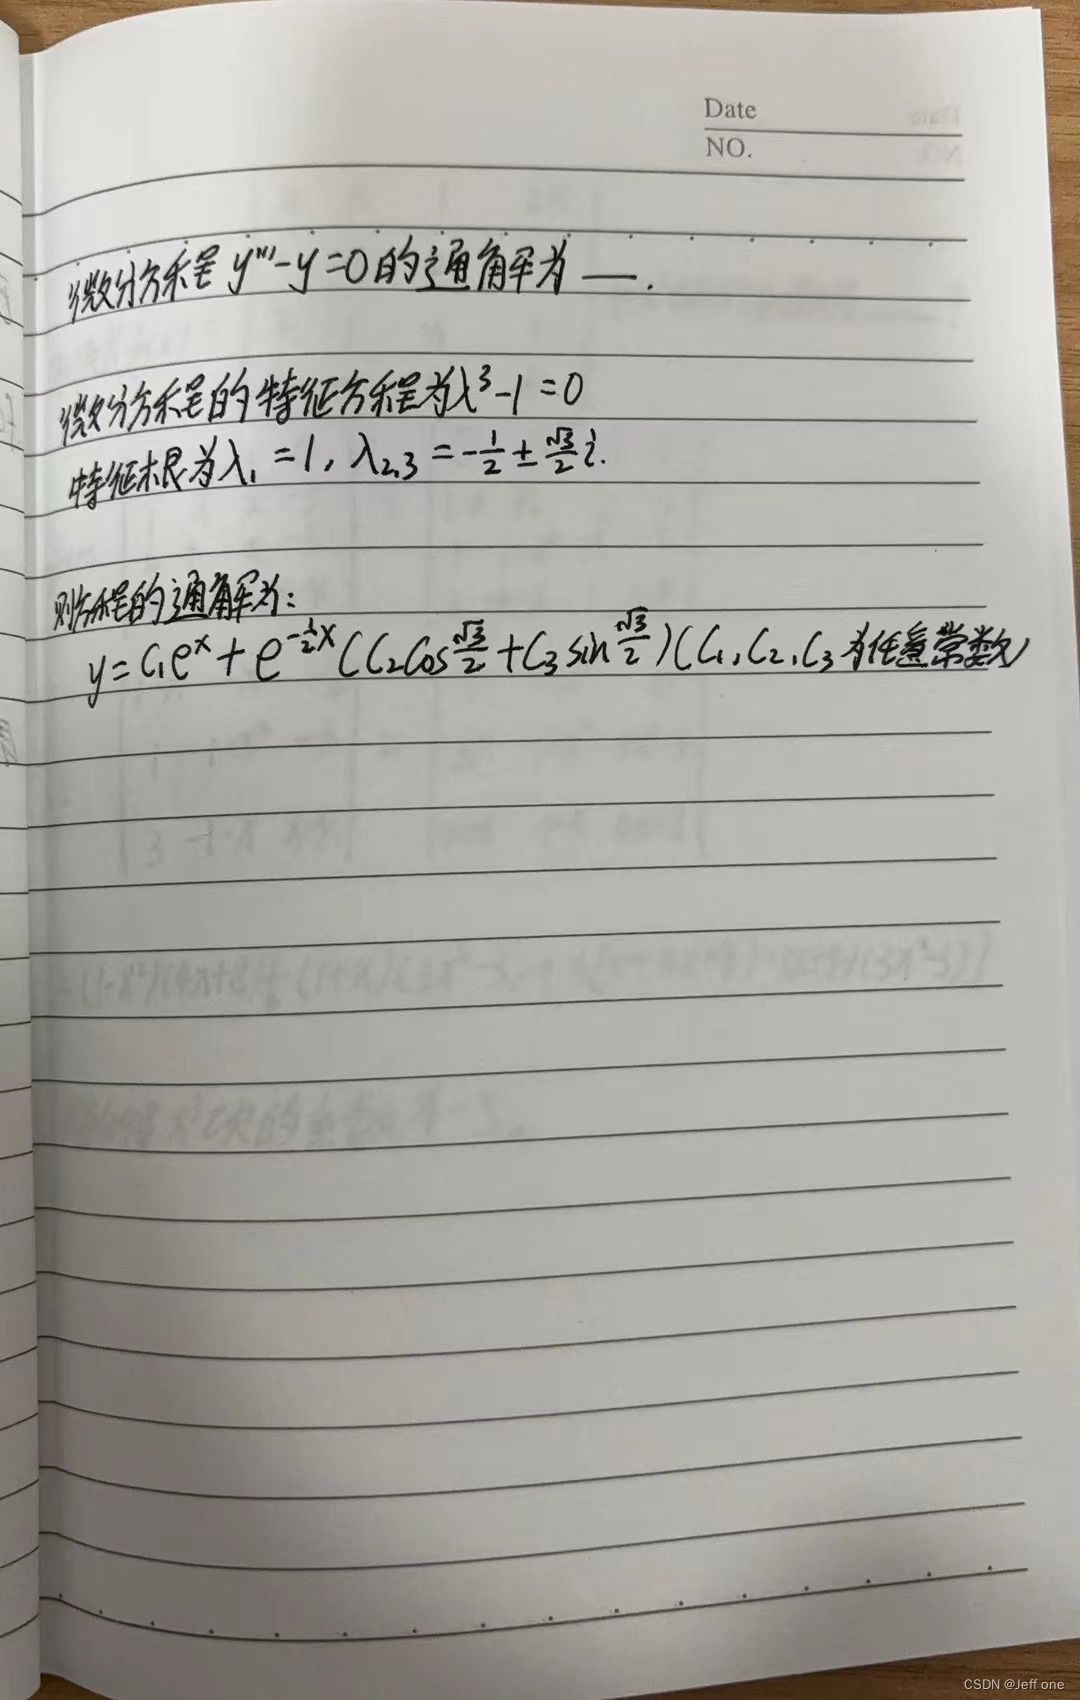 Date
NO.
微分方程 y'''-y=0的通解为 ___.
微分方程的特征方程为λ³-1=0
特征根为λ₁=1, λ₂,₃=-1/2±√3/2 i.
则方程的通解为:
y=C₁eˣ+e^{-1/2x}(C₂cos√3/2+C₃sin√3/2)(C₁,C₂,C₃为任意常数)
CSDN @Jeff one